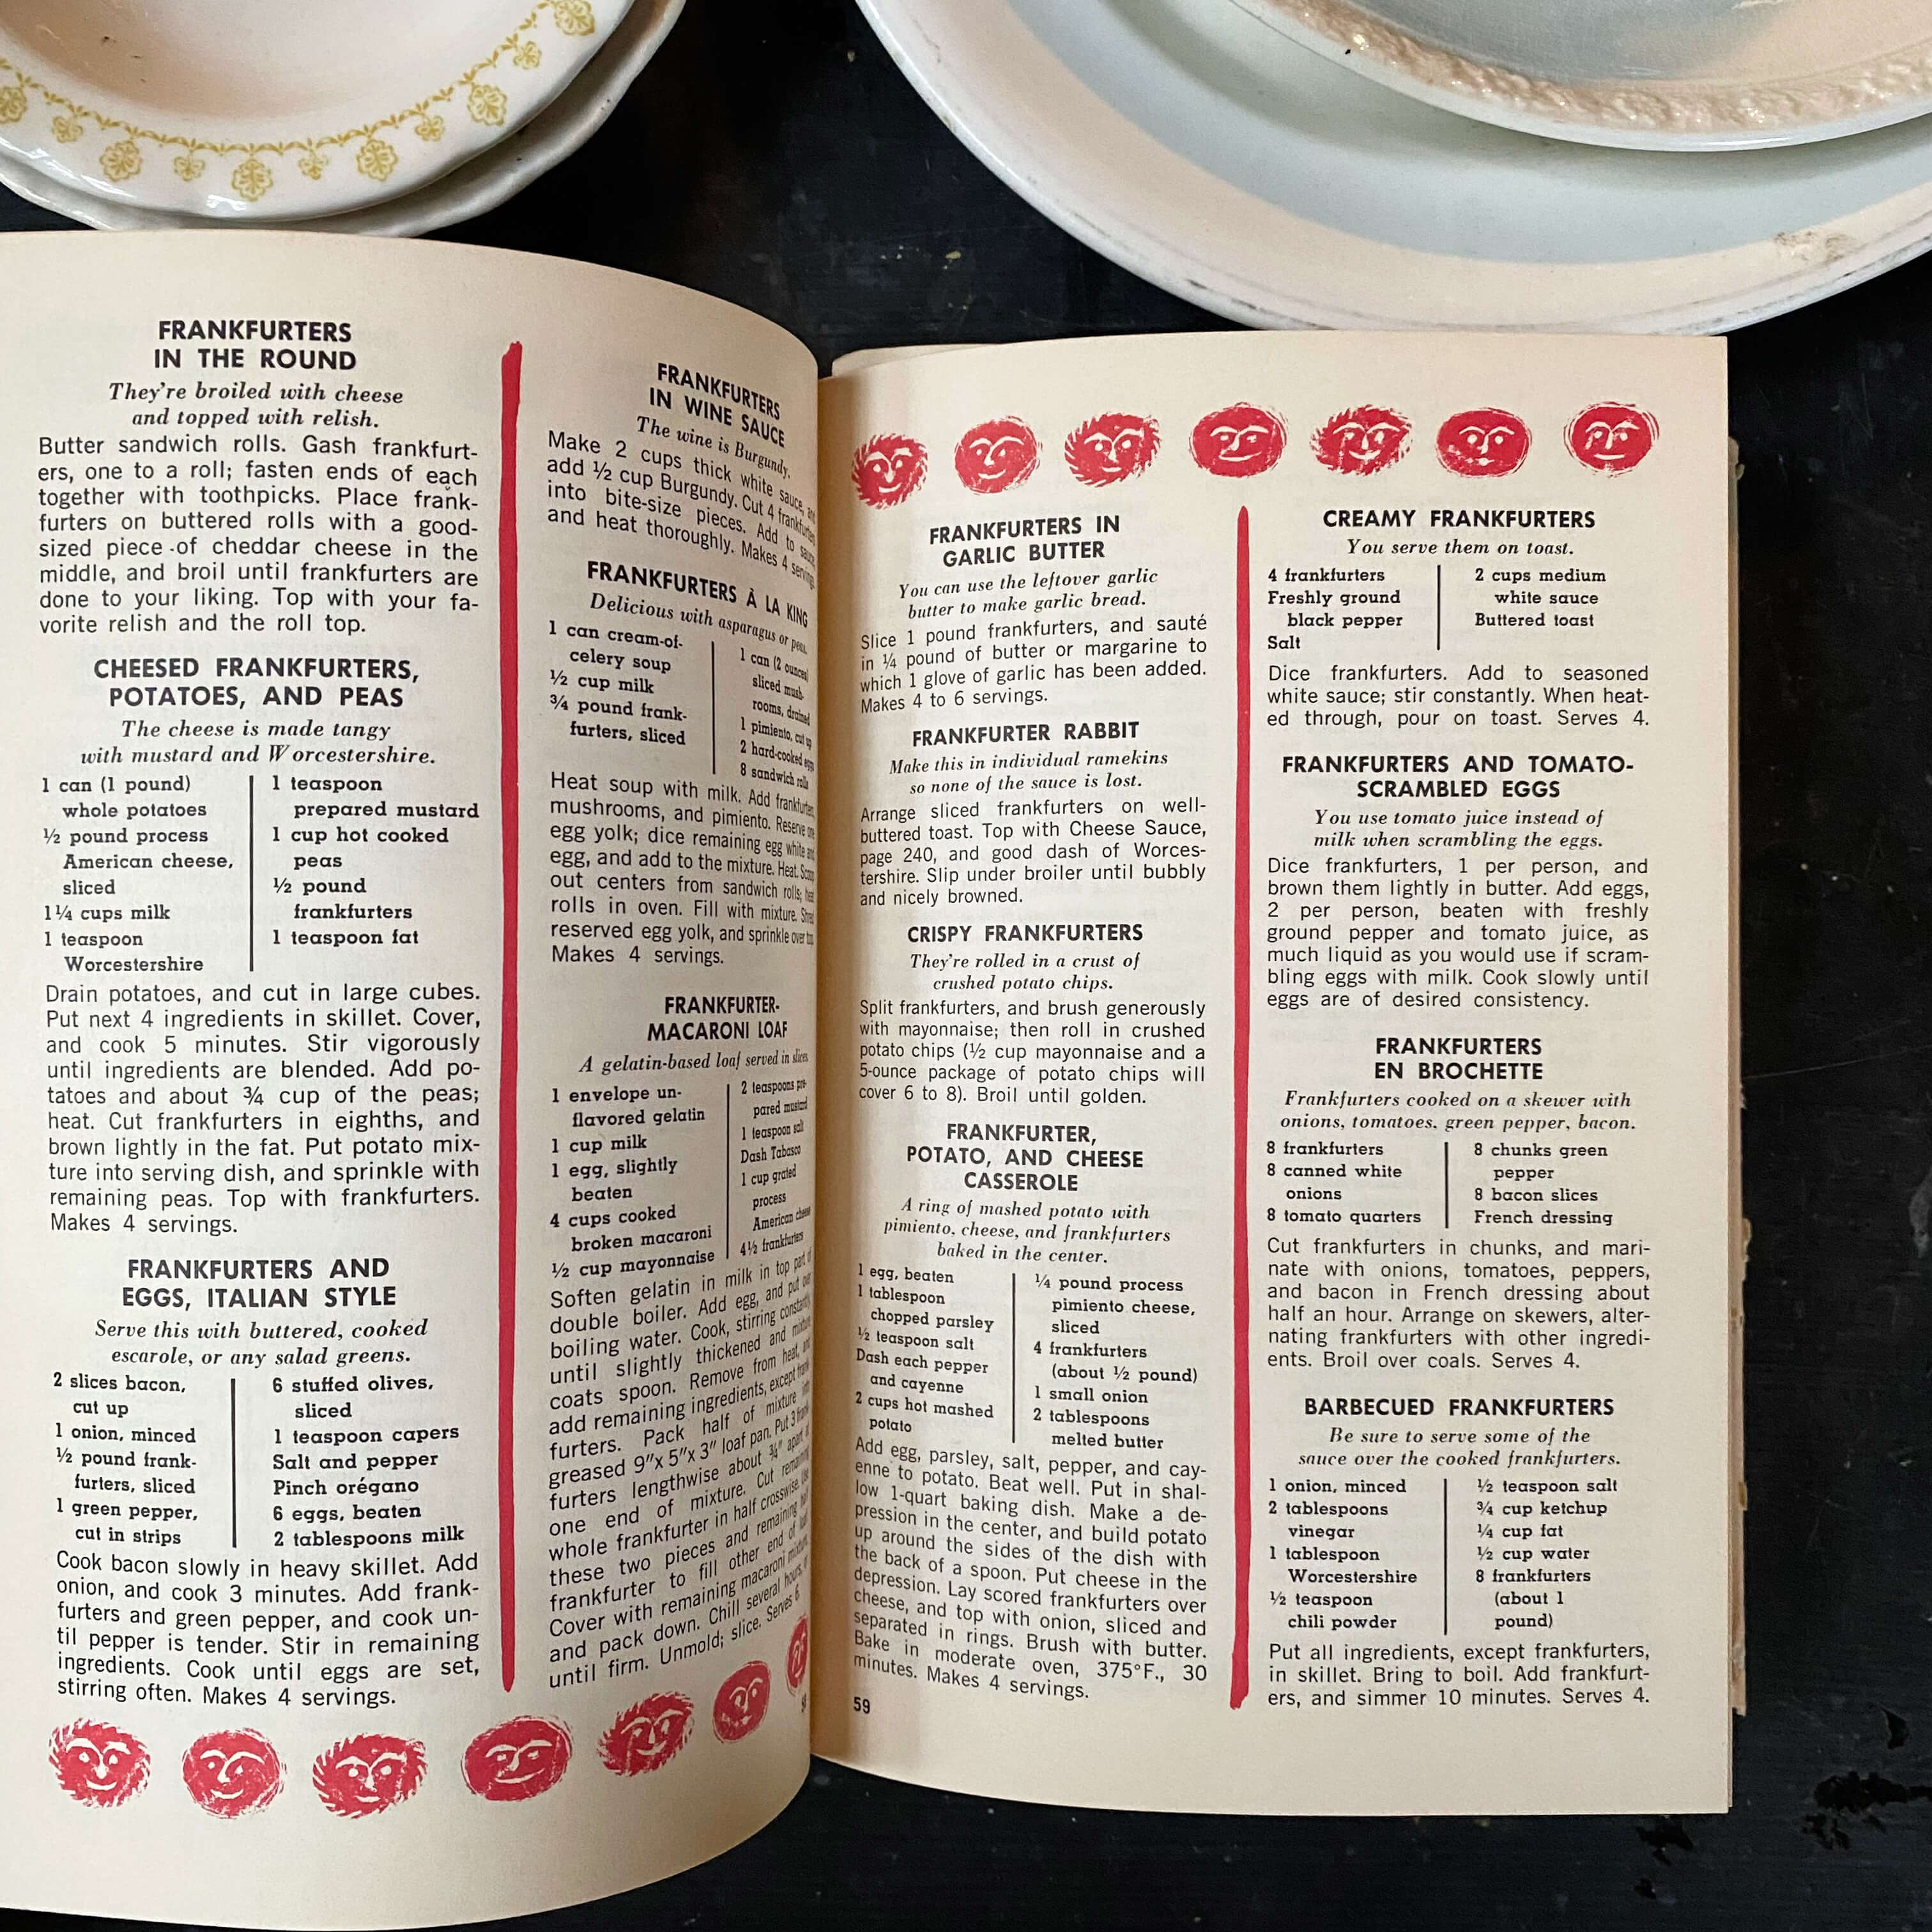 FRANKFURTERS
IN THE ROUND
They're broiled with cheese
and topped with relish.
Butter sandwich rolls. Gash frankfurt-
ers, one to a roll; fasten ends of each
together with toothpicks. Place frank-
furters on buttered rolls with a good-
sized piece of cheddar cheese in the
middle, and broil until frankfurters are
done to your liking. Top with your fa-
vorite relish and the roll top.
CHEESED FRANKFURTERS,
POTATOES, AND PEAS
The cheese is made tangy
with mustard and Worcestershire.
1 can (1 pound)
whole potatoes
½ pound process
American cheese,
sliced
1¼ cups milk
1 teaspoon
Worcestershire
1 teaspoon
prepared mustard
1 cup hot cooked
peas
½ pound
frankfurters
1 teaspoon fat
Drain potatoes, and cut in large cubes.
Put next 4 ingredients in skillet. Cover,
and cook 5 minutes. Stir vigorously
until ingredients are blended. Add po-
tatoes and about ¾ cup of the peas;
heat. Cut frankfurters in eighths, and
brown lightly in the fat. Put potato mix-
ture into serving dish, and sprinkle with
remaining peas. Top with frankfurters.
Makes 4 servings.
FRANKFURTERS AND
EGGS, ITALIAN STYLE
Serve this with buttered, cooked
escarole, or any salad greens.
2 slices bacon,
cut up
1 onion, minced
½ pound frank-
furters, sliced
1 green pepper,
cut in strips
6 stuffed olives,
sliced
1 teaspoon capers
Salt and pepper
Pinch orégano
6 eggs, beaten
2 tablespoons milk
Cook bacon slowly in heavy skillet. Add
onion, and cook 3 minutes. Add frank-
furters and green pepper, and cook un-
til pepper is tender. Stir in remaining
ingredients. Cook until eggs are set,
stirring often. Makes 4 servings.
FRANKFURTERS
IN WINE SAUCE
The wine is Burgundy.
Make 2 cups thick white sauce, and
add ½ cup Burgundy. Cut 4 frankfurters
into bite-size pieces. Add to sauce,
and heat thoroughly. Makes 4 servings.
FRANKFURTERS À LA KING
Delicious with asparagus or peas.
1 can cream-of-
celery soup
½ cup milk
¾ pound frank-
furters, sliced
1 can (2 ounces)
sliced mush-
rooms, drained
1 pimiento, cut up
2 hard-cooked eggs
8 sandwich rolls
Heat soup with milk. Add frankfurters,
mushrooms, and pimiento. Reserve one
egg yolk; dice remaining egg white and
egg, and add to the mixture. Heat. Scoop
out centers from sandwich rolls; heat
rolls in oven. Fill with mixture. Shred
reserved egg yolk, and sprinkle over top.
Makes 4 servings.
FRANKFURTER-
MACARONI LOAF
A gelatin-based loaf served in slices.
1 envelope un-
flavored gelatin
1 cup milk
1 egg, slightly
beaten
4 cups cooked
broken macaroni
½ cup mayonnaise
2 teaspoons pre-
pared mustard
1 teaspoon salt
Dash Tabasco
1 cup grated
process
American cheese
4½ frankfurters
Soften gelatin in milk in top part of
double boiler. Add egg, and put over
boiling water. Cook, stirring constantly,
until slightly thickened and mixture
coats spoon. Remove from heat, and
add remaining ingredients, except frank-
furters. Pack half of mixture into
greased 9"x 5"x 3" loaf pan. Put 3 frank-
furters lengthwise about ¾" apart at
one end of mixture. Cut remaining
whole frankfurter in half crosswise. Use
these two pieces and remaining half
frankfurter to fill other end of loaf.
Cover with remaining macaroni mixture,
and pack down. Chill several hours, or
until firm. Unmold; slice. Serves 6.
FRANKFURTERS IN
GARLIC BUTTER
You can use the leftover garlic
butter to make garlic bread.
Slice 1 pound frankfurters, and sauté
in ¼ pound of butter or margarine to
which 1 glove of garlic has been added.
Makes 4 to 6 servings.
FRANKFURTER RABBIT
Make this in individual ramekins
so none of the sauce is lost.
Arrange sliced frankfurters on well-
buttered toast. Top with Cheese Sauce,
page 240, and good dash of Worces-
tershire. Slip under broiler until bubbly
and nicely browned.
CRISPY FRANKFURTERS
They're rolled in a crust of
crushed potato chips.
Split frankfurters, and brush generously
with mayonnaise; then roll in crushed
potato chips (½ cup mayonnaise and a
5-ounce package of potato chips will
cover 6 to 8). Broil until golden.
FRANKFURTER,
POTATO, AND CHEESE
CASSEROLE
A ring of mashed potato with
pimiento, cheese, and frankfurters
baked in the center.
1 egg, beaten
1 tablespoon
chopped parsley
½ teaspoon salt
Dash each pepper
and cayenne
2 cups hot mashed
potato
¼ pound process
pimiento cheese,
sliced
4 frankfurters
(about ½ pound)
1 small onion
2 tablespoons
melted butter
Add egg, parsley, salt, pepper, and cay-
enne to potato. Beat well. Put in shal-
low 1-quart baking dish. Make a de-
pression in the center, and build potato
up around the sides of the dish with
the back of a spoon. Put cheese in the
depression. Lay scored frankfurters over
cheese, and top with onion, sliced and
separated in rings. Brush with butter.
Bake in moderate oven, 375°F., 30
minutes. Makes 4 servings.
59
CREAMY FRANKFURTERS
You serve them on toast.
4 frankfurters
Freshly ground
black pepper
Salt
2 cups medium
white sauce
Buttered toast
Dice frankfurters. Add to seasoned
white sauce; stir constantly. When heat-
ed through, pour on toast. Serves 4.
FRANKFURTERS AND TOMATO-
SCRAMBLED EGGS
You use tomato juice instead of
milk when scrambling the eggs.
Dice frankfurters, 1 per person, and
brown them lightly in butter. Add eggs,
2 per person, beaten with freshly
ground pepper and tomato juice, as
much liquid as you would use if scram-
bling eggs with milk. Cook slowly until
eggs are of desired consistency.
FRANKFURTERS
EN BROCHETTE
Frankfurters cooked on a skewer with
onions, tomatoes, green pepper, bacon.
8 frankfurters
8 canned white
onions
8 tomato quarters
8 chunks green
pepper
8 bacon slices
French dressing
Cut frankfurters in chunks, and mari-
nate with onions, tomatoes, peppers,
and bacon in French dressing about
half an hour. Arrange on skewers, alter-
nating frankfurters with other ingredi-
ents. Broil over coals. Serves 4.
BARBECUED FRANKFURTERS
Be sure to serve some of the
sauce over the cooked frankfurters.
1 onion, minced
2 tablespoons
vinegar
1 tablespoon
Worcestershire
½ teaspoon
chili powder
½ teaspoon salt
¾ cup ketchup
¼ cup fat
½ cup water
8 frankfurters
(about 1
pound)
Put all ingredients, except frankfurters,
in skillet. Bring to boil. Add frankfurt-
ers, and simmer 10 minutes. Serves 4.